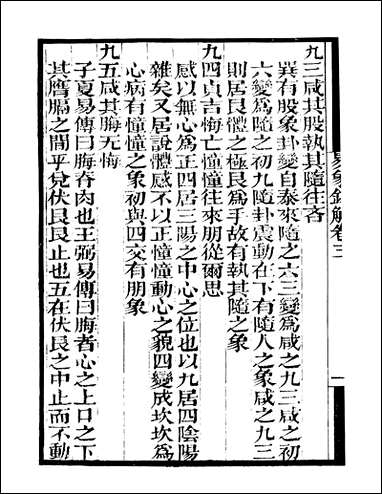 九三咸其股執其隨往吝
巽有股象卦變自泰來隨之六三變爲咸之九三咸之初
六變爲隨之初九隨卦震動在下有隨人之象咸之九三
則居艮體之極艮爲手故有執其隨之象
九四貞吉悔亡憧憧往來朋從爾思
咸以無心爲正四居三陽之中心之位也以九居四陰陽
雜矣又居說體感不以正憧憧動心之貌四變成坎坎爲
心病有憧憧之象初與四交有朋象
九五咸其脢无悔
子夏易傳曰脢脊肉也王弼易傳曰脢者心之上口之下
其膺膈之間乎兌伏艮艮止也五在伏艮之中止而不動
易象鈔解卷三